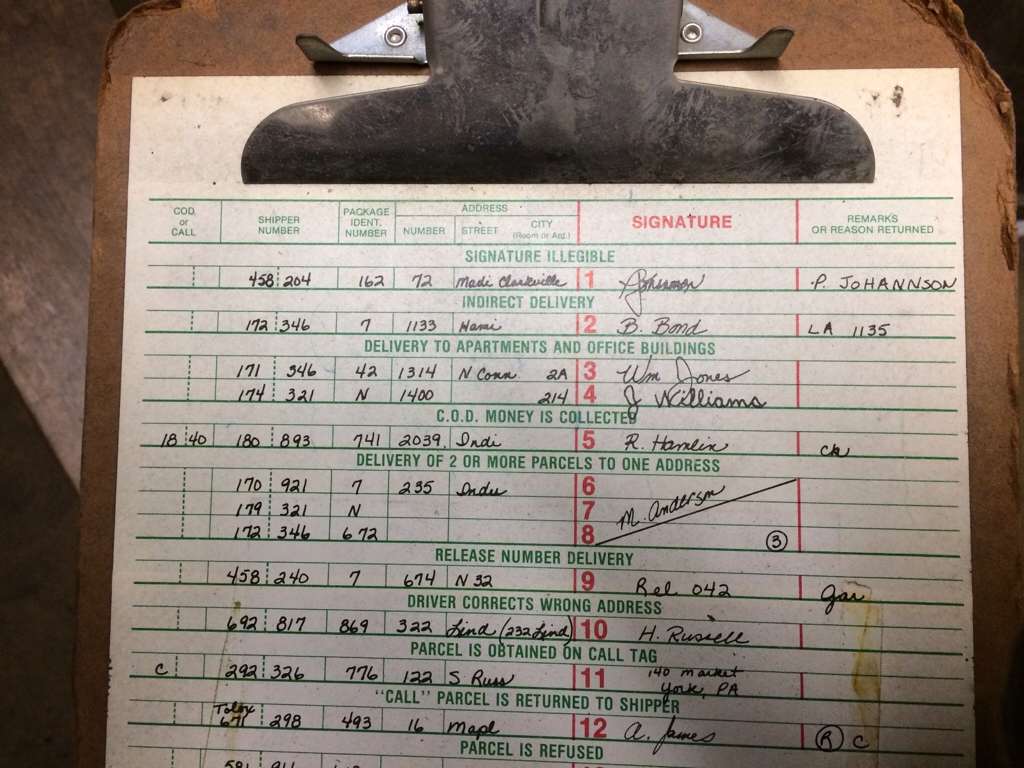 COD. or CALL SHIPPER NUMBER PACKAGE IDENT. NUMBER ADDRESS NUMBER STREET CITY (Room or Apt.) SIGNATURE REMARKS OR REASON RETURNED
SIGNATURE ILLEGIBLE
458 204 162 72 Madi Clarkville 1 P. JOHANNSON
INDIRECT DELIVERY
172 346 7 1133 Hami 2 B. Bond LA 1135
DELIVERY TO APARTMENTS AND OFFICE BUILDINGS
171 346 42 1314 N Conn 2A 3 Wm Jones
174 321 N 1400 214 4 J Williams
C.O.D. MONEY IS COLLECTED
18 40 180 893 741 2039 Indi 5 R. Hamlin ck
DELIVERY OF 2 OR MORE PARCELS TO ONE ADDRESS
170 921 7 235 Indu 6
179 321 N 7 M. Anderson
172 346 672 8 3
RELEASE NUMBER DELIVERY
458 240 7 674 N 32 9 Rel 042 Gar
DRIVER CORRECTS WRONG ADDRESS
692 817 869 322 Lind (232 Lind) 10 H. Russell
PARCEL IS OBTAINED ON CALL TAG
C 292 326 776 122 S Russ 11 140 market
York, PA
"CALL" PARCEL IS RETURNED TO SHIPPER
671 298 493 16 Mapl 12 A. James R C
PARCEL IS REFUSED